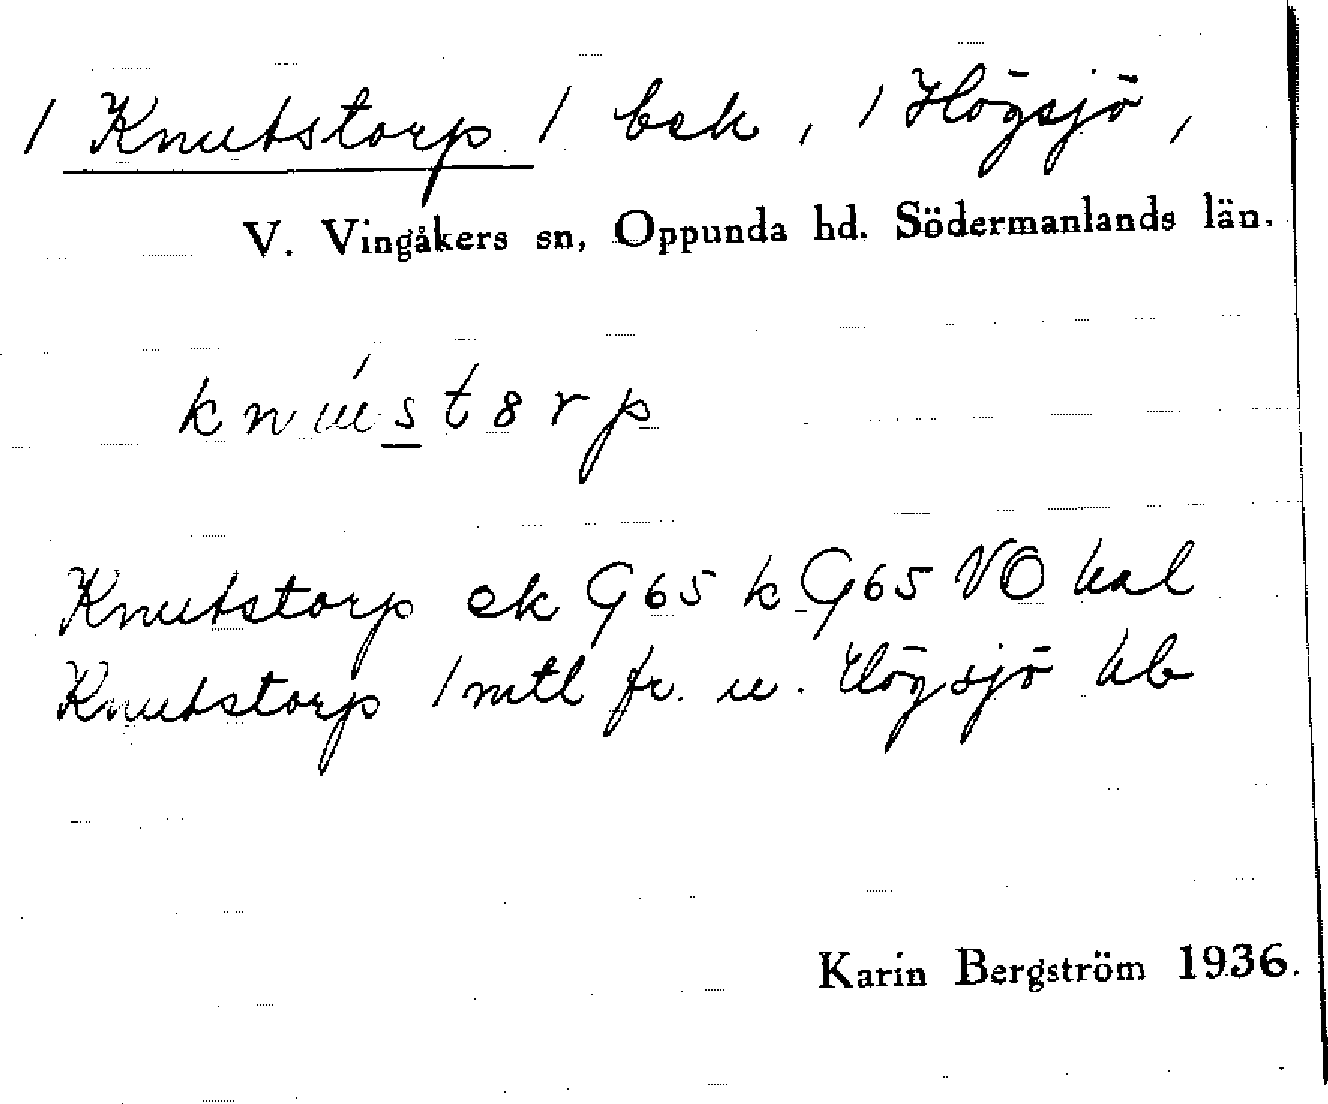 / Knutstorp / bek, / Högsjö,
V. Vingåkers sn, Oppunda hd. Södermanlands län.
knústorp
Knutstorp ek G65 k G65 VO hal
Knutstorp 1 mtl fr. u. Högsjö hb
Karin Bergström 1936.